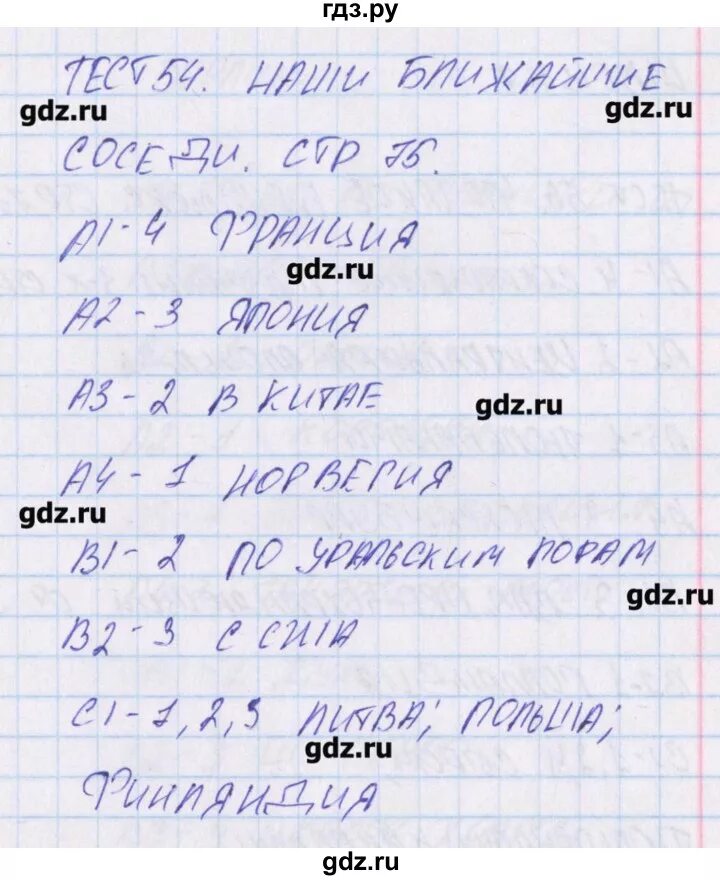 гдз.ру
ТЕСТ 54. НАШИ БЛИЖАЙШИЕ
gdz.ru
gdz.ru
СОСЕДИ. СТР 75.
А1-4 ФРАНЦИЯ
gdz.ru
А2-3 ЯПОНИЯ
А3-2 В КИТАЕ
gdz.ru
А4-1 НОРВЕГИЯ
gdz.ru
В1-2 ПО УРАЛЬСКИМ ГОРАМ
gdz.ru
В2-3 С США
С1-1,2,3 ЛИТВА; ПОЛЬША;
gdz.ru
ФИНЛЯНДИЯ
gdz.ru